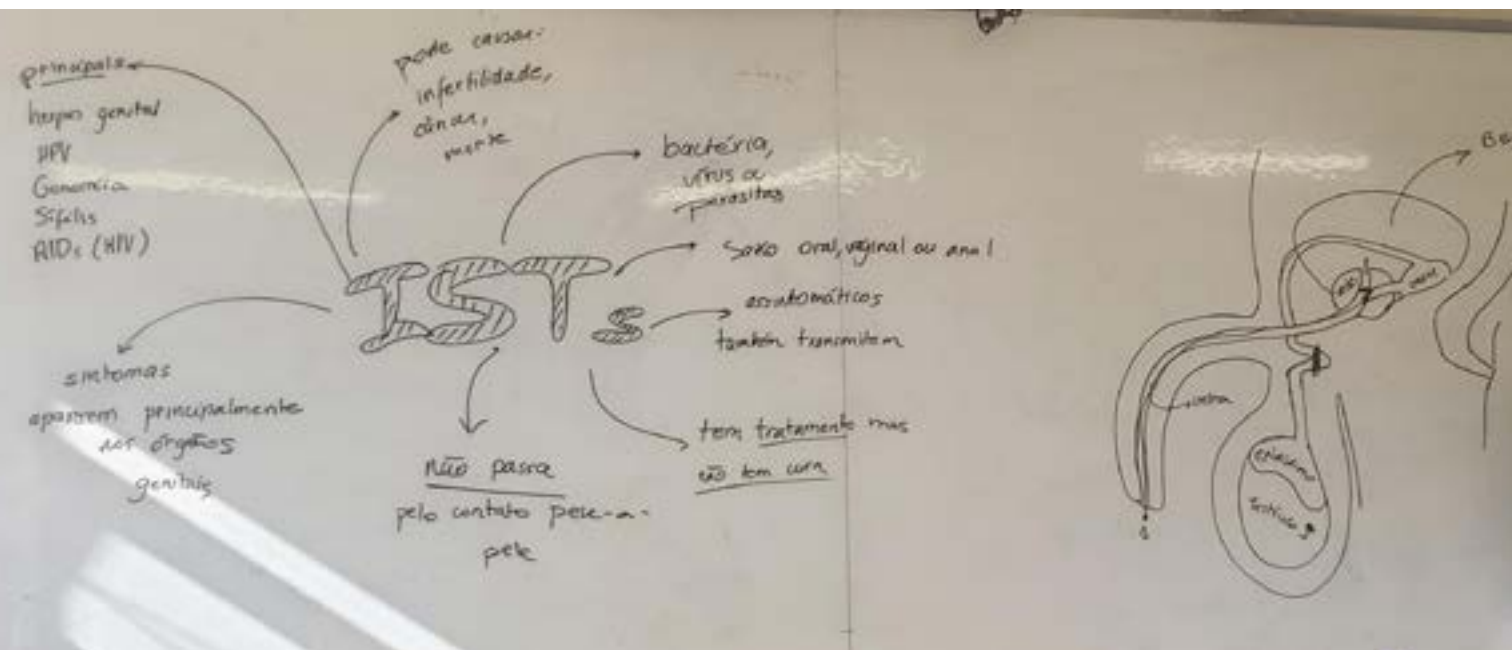 principais
herpes genital
HPV
Gonorreia
Sífilis
AIDs (HIV)
pode causar:
infertilidade,
câncer,
morte
bactéria,
vírus e
parasitas
sexo oral, vaginal ou anal
assintomáticos
também transmitem
ISTs
sintomas
aparecem principalmente
nos órgãos
genitais
não passa
pelo contato pele-a-
pele
tem tratamento mas
não tem cura
Be
uretra
epidídimo
testículo